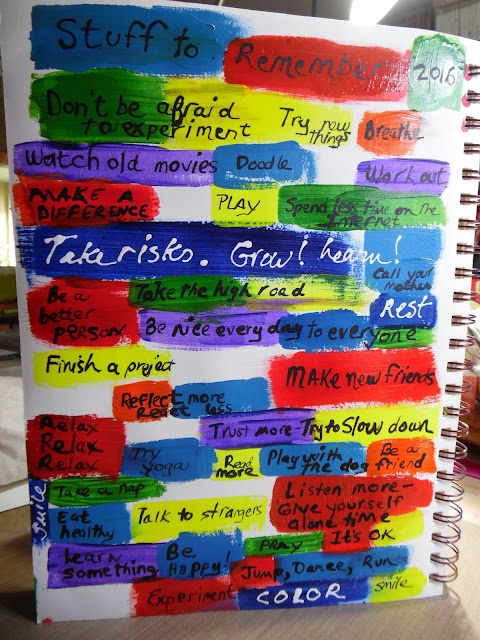 Stuff to Remember 2016
Don't be afraid
to experiment
Try new
things
Breathe
Watch old movies
Doodle
Work out
MAKE A
DIFFERENCE
PLAY
Spend less time on the
Internet
Take risks. Grow! Learn!
Call your
mother
Be a
better
PERSON
Take the high road
REST
Be nice every day to everyone
Finish a project
MAKE new friends
Reflect more
React less
Relax
Relax
Relax
Trust more - Try to Slow down
Try
yoga
Read
more
Play with
the dog
Be a
friend
Smile
Take a nap
Listen more -
Give yourself
alone time
It's OK
Eat
healthy
Talk to strangers
Learn
something
Be
Happy!
PRAY
Jump, Dance, Run
Experiment
COLOR
Smile